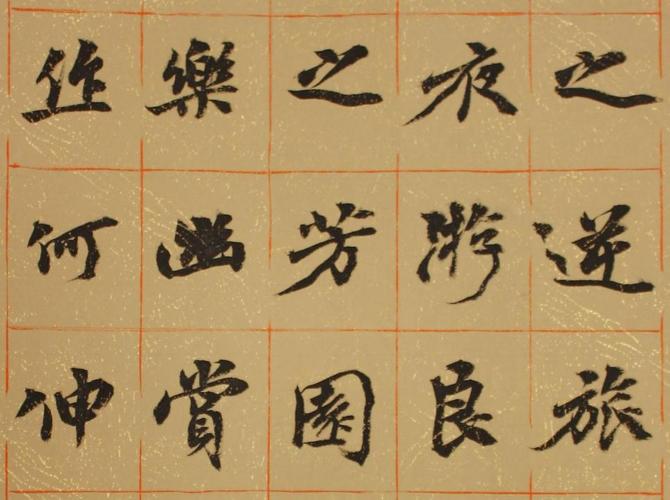 之逆旅
夜游良
之芳園
樂幽賞
作何伸